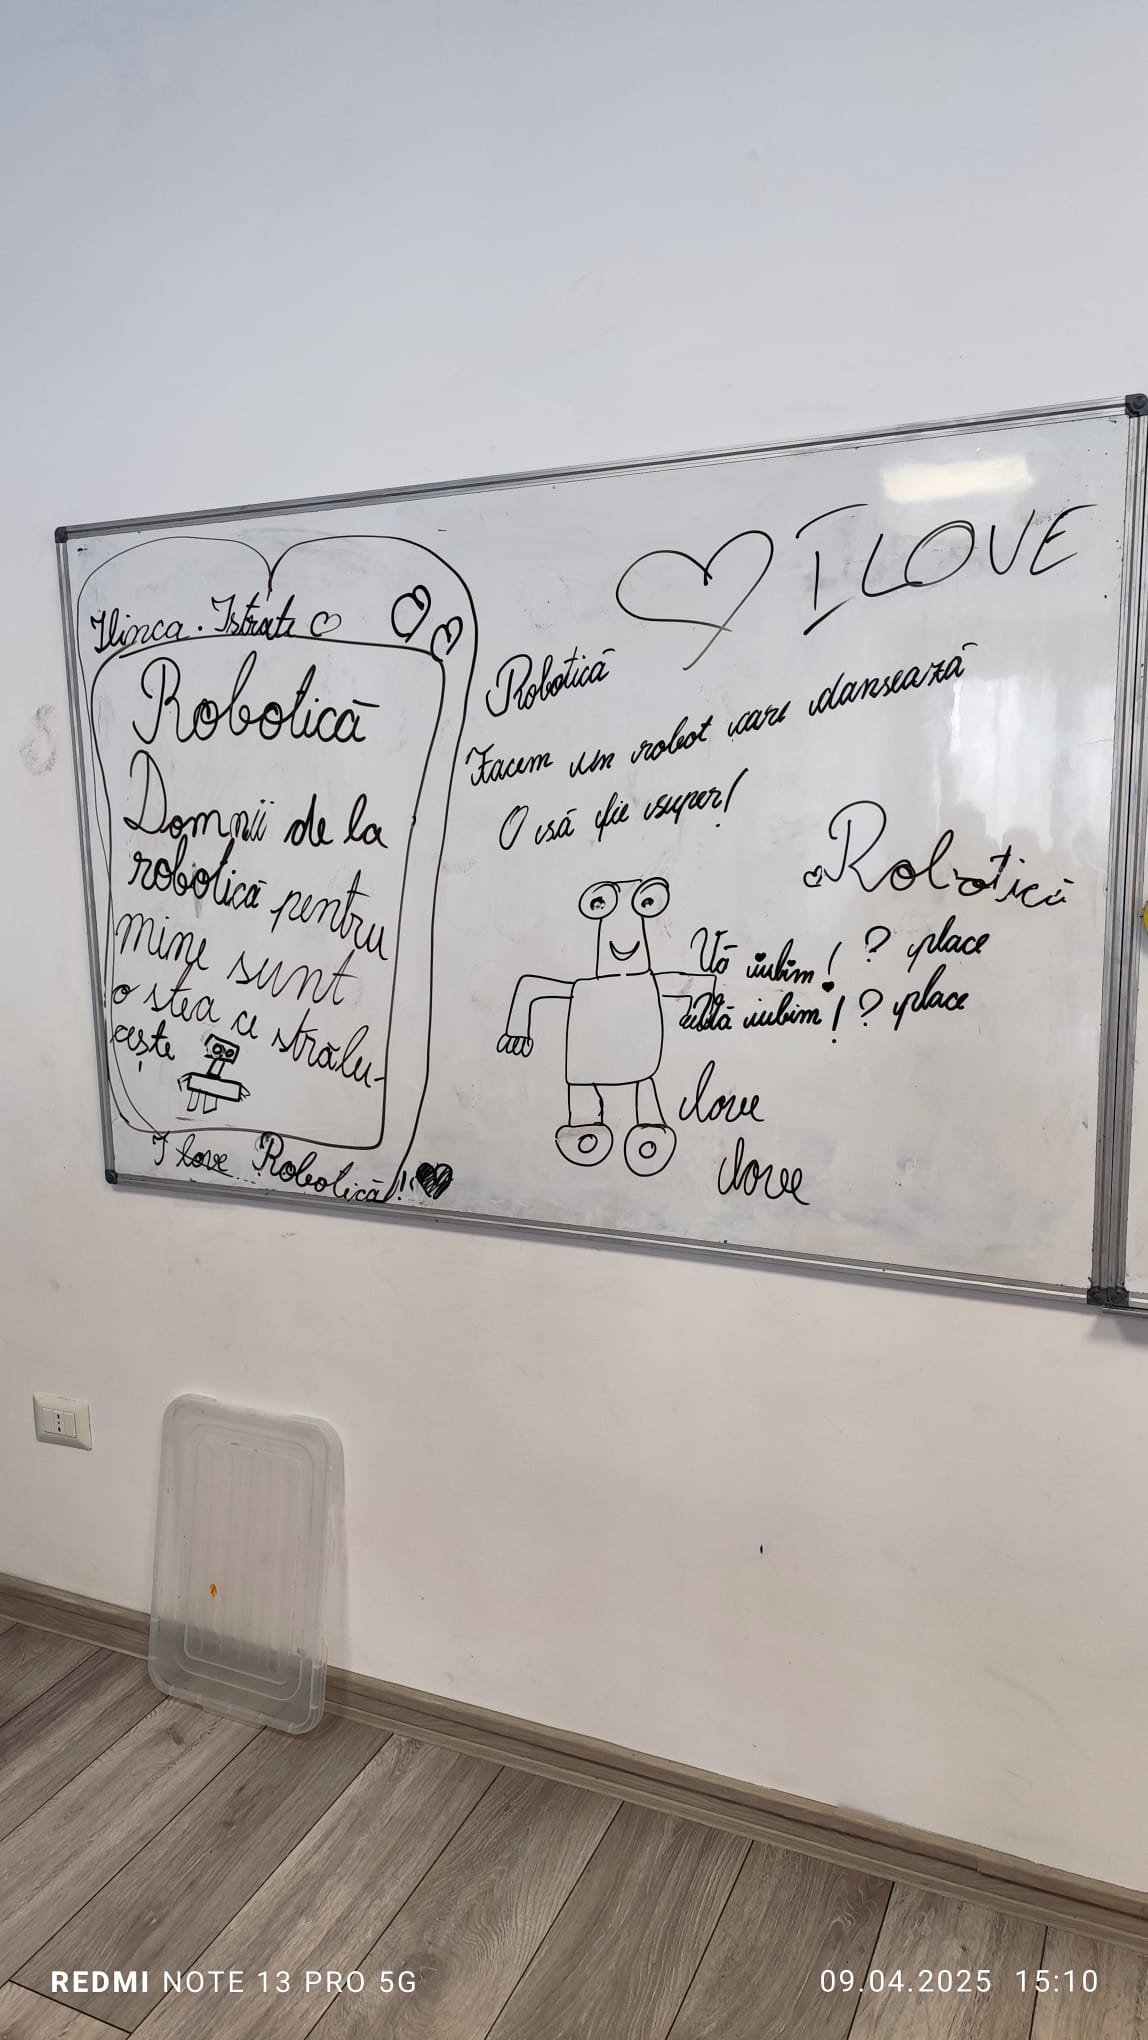 Ilinca. Istrate
Robotică
Domnii de la
robotică pentru
mine sunt
o stea ce strălu-
cește
I love Robotică!
I LOVE
Robotică
Facem un robot care dansează
O să fie super!
Robotică
Vă iubim! ? place
Vă iubim! ? place
love
love
REDMI NOTE 13 PRO 5G
09.04.2025 15:10